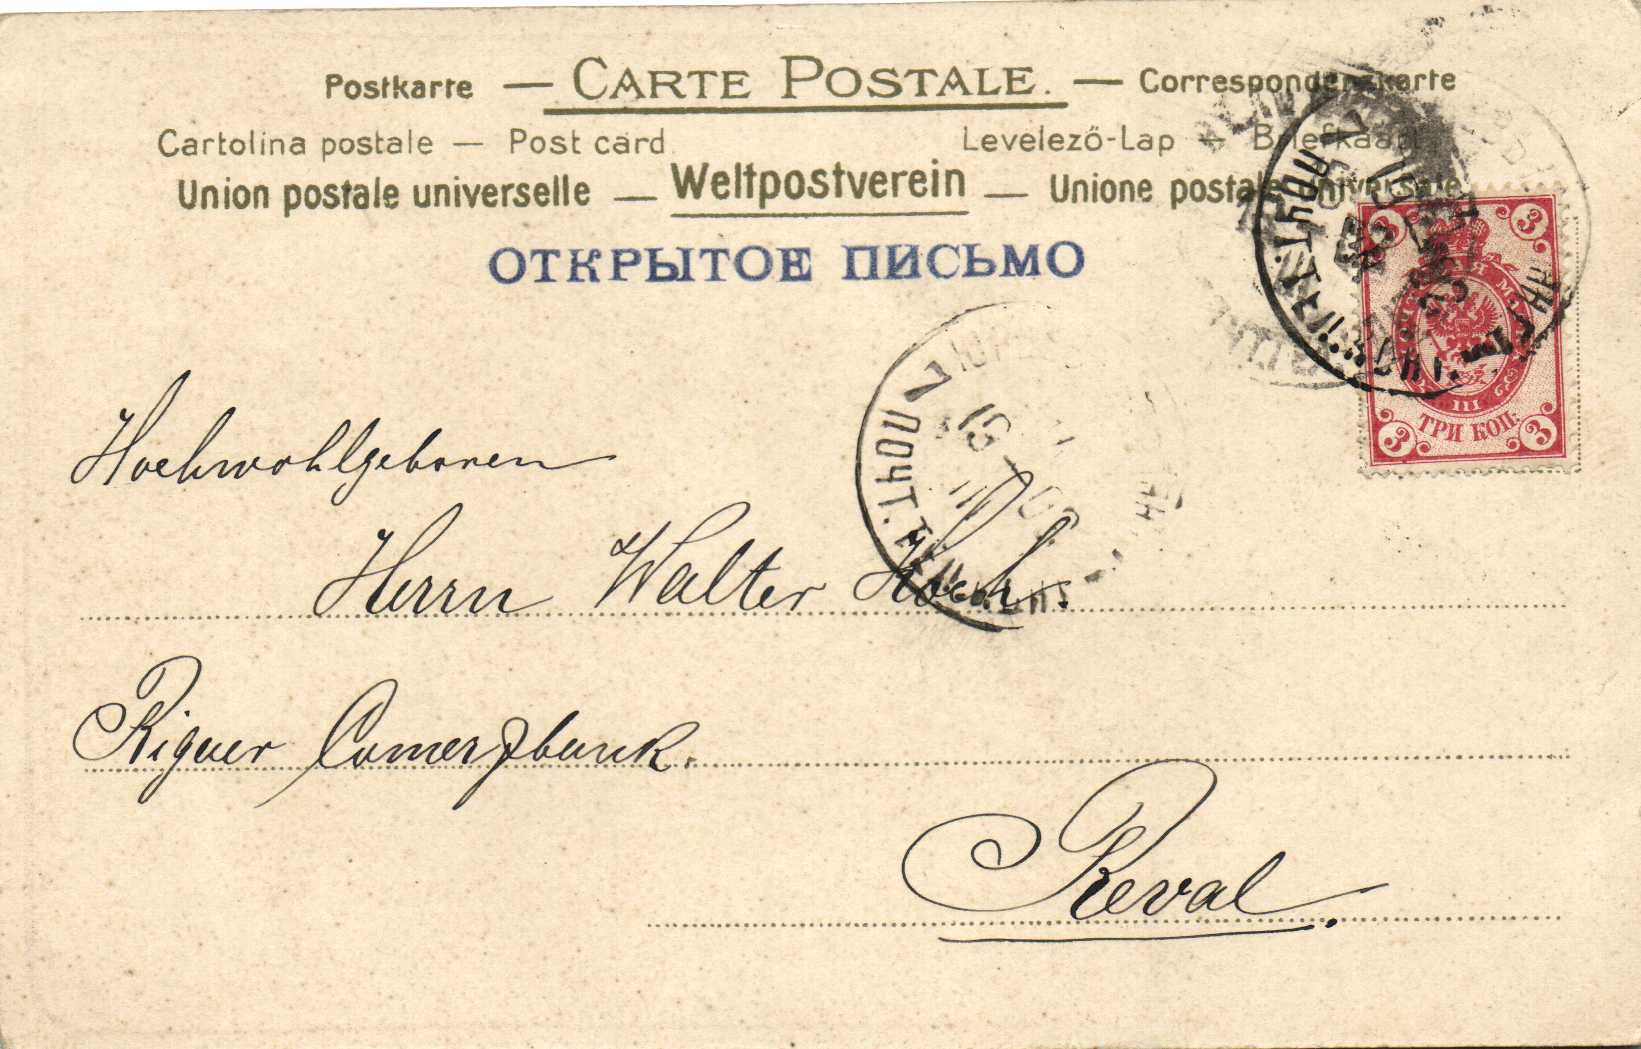 Postkarte — CARTE POSTALE. — Correspondenzkarte
Cartolina postale — Post card Levelező-Lap — Briefkaart
Union postale universelle — Weltpostverein — Unione postale universale
ОТКРЫТОЕ ПИСЬМО
3 3
3 3
ТРИ КОП.
7 ПОЧТ.
7 ПОЧТ.
Hochwohlgeboren
Herrn Walter Koch.
Rigaer Comerzbank.
Reval.